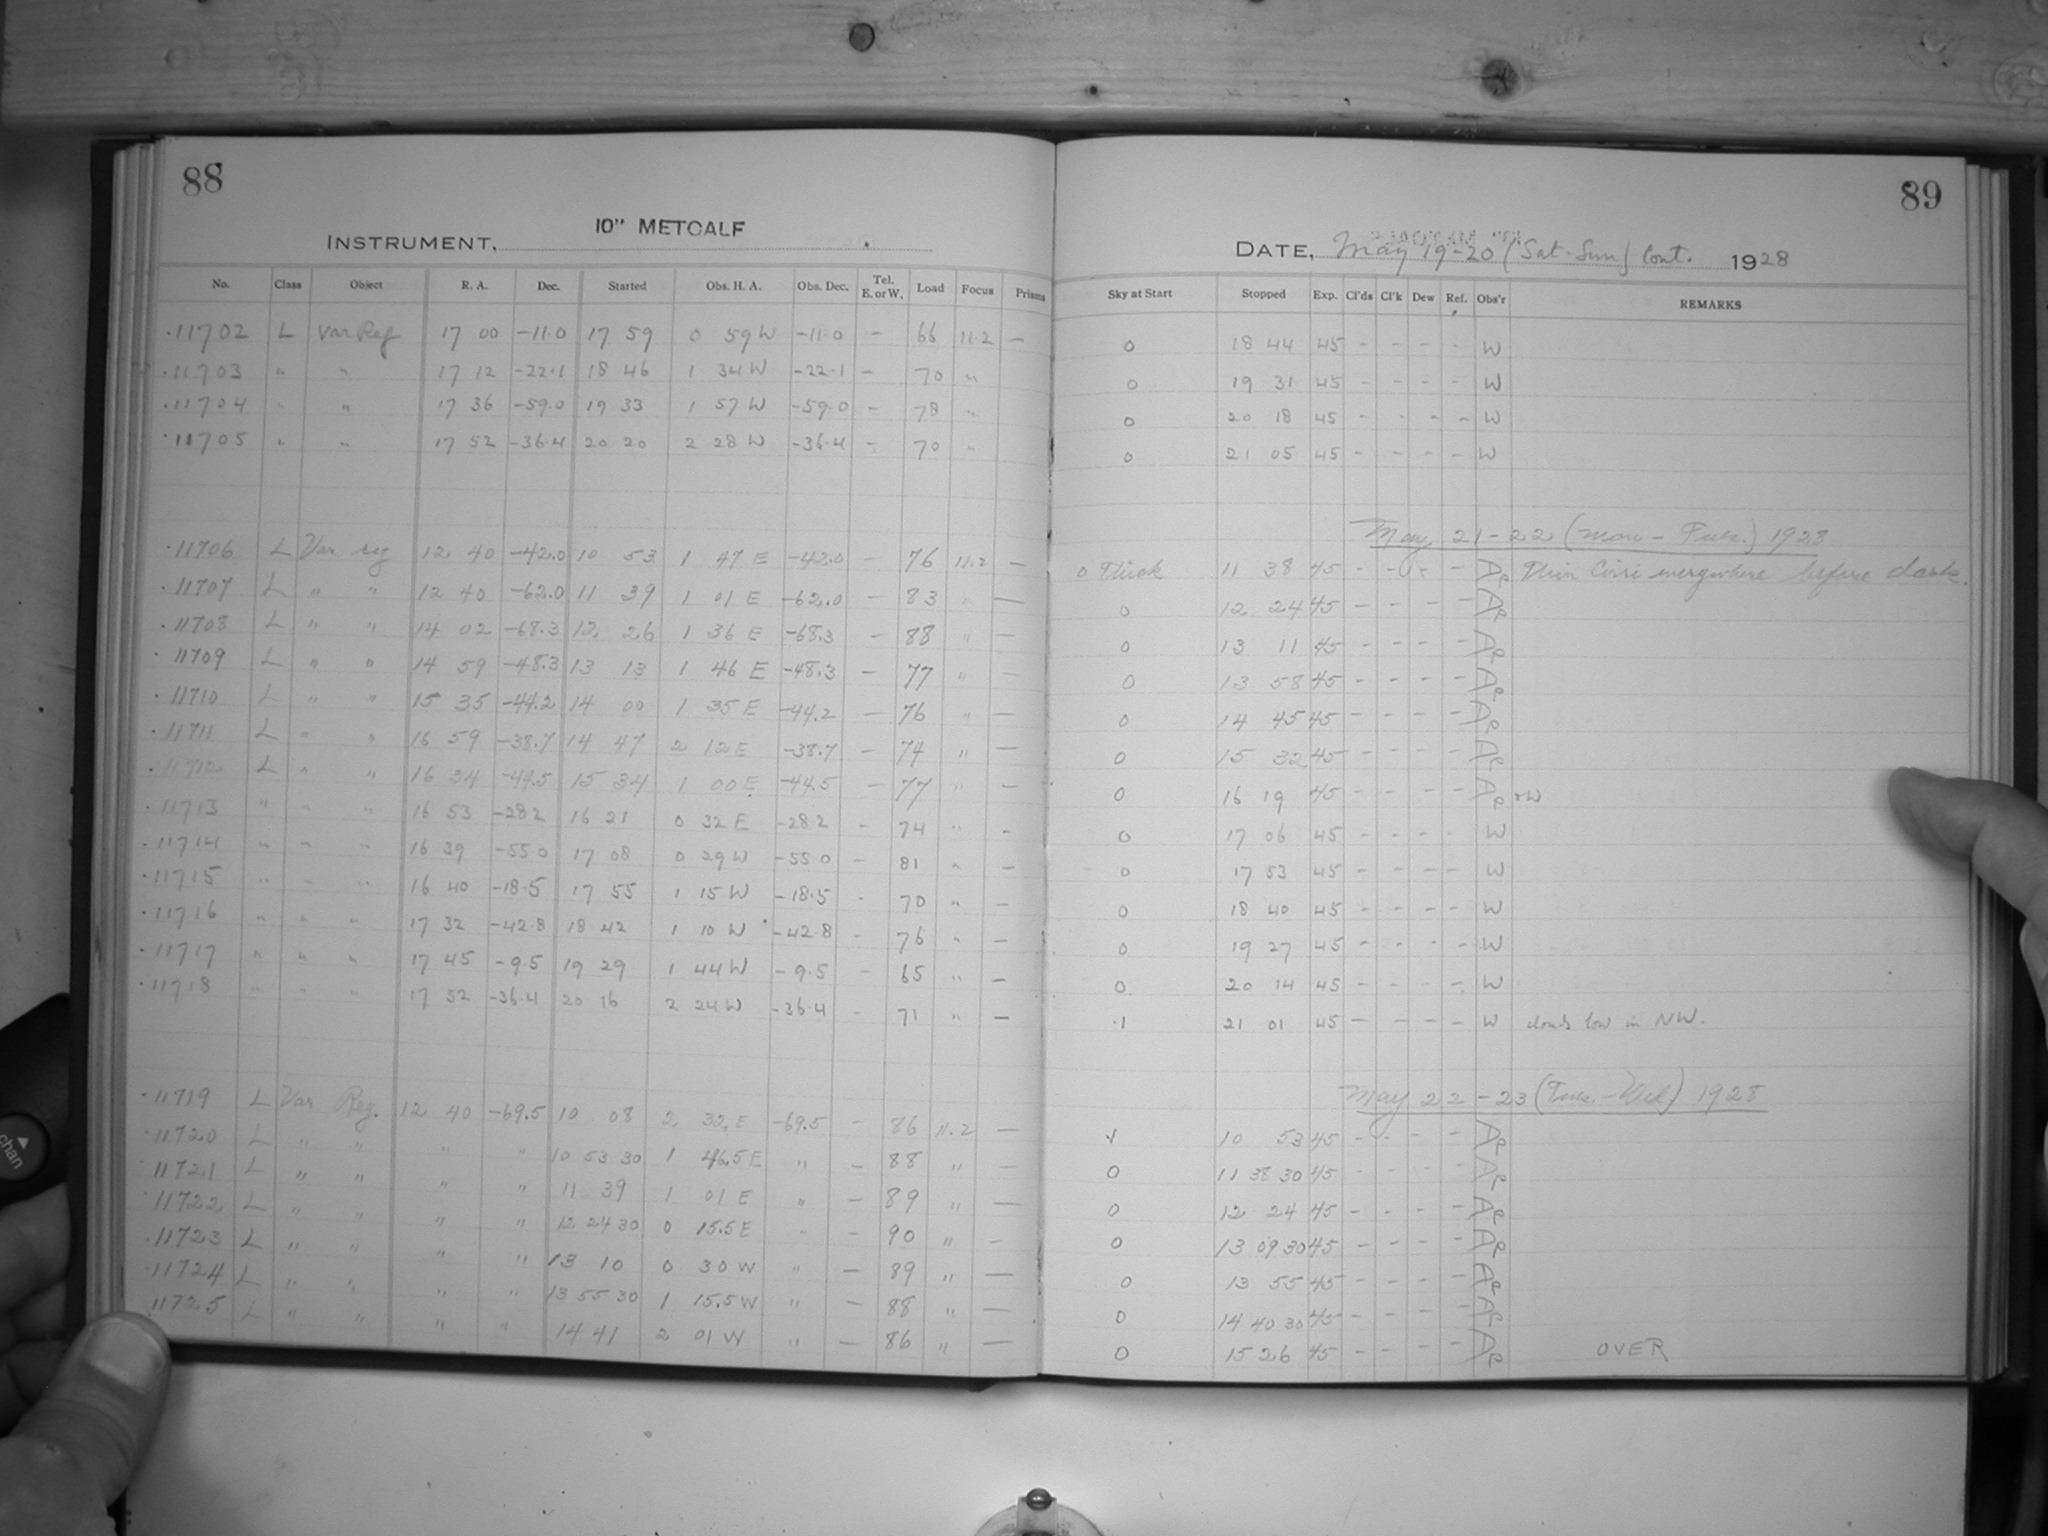 88
INSTRUMENT, 10" METCALF
No. Class Object R. A. Dec. Started Obs. H. A. Obs. Dec. Tel. E. or W. Load Focus Prisms
11702 L Var Reg 17 00 -11.0 17 59 0 59 W -11.0 - 66 11.2 -
11703 " " 17 12 -22.1 18 46 1 34 W -22.1 - 70 "
11704 " " 17 36 -59.0 19 33 1 57 W -59.0 - 78 "
11705 " " 17 52 -36.4 20 20 2 28 W -36.4 - 70 "
11706 L Var reg 12 40 -42.0 10 53 1 47 E -42.0 - 76 11.2 -
11707 L " " 12 40 -62.0 11 39 1 01 E -62.0 - 83 " -
11708 L " " 14 02 -68.3 12 26 1 36 E -68.3 - 88 " -
11709 L " " 14 59 -48.3 13 13 1 46 E -48.3 - 77 " -
11710 L " " 15 35 -44.2 14 00 1 35 E -44.2 - 76 " -
11711 L " " 16 59 -38.7 14 47 2 12 E -38.7 - 74 " -
11712 L " " 16 34 -44.5 15 34 1 00 E -44.5 - 77 " -
11713 " " " 16 53 -28.2 16 21 0 32 E -28.2 - 74 " -
11714 " " " 16 39 -55.0 17 08 0 29 W -55.0 - 81 " -
11715 " " " 16 40 -18.5 17 55 1 15 W -18.5 - 70 " -
11716 " " " 17 32 -42.8 18 42 1 10 W -42.8 - 76 " -
11717 " " " 17 45 -9.5 19 29 1 44 W -9.5 - 65 " -
11718 " " " 17 52 -36.4 20 16 2 24 W -36.4 - 71 " -
11719 L Var Reg. 12 40 -69.5 10 08 2 32 E -69.5 - 86 11.2 -
11720 L " " " " 10 53 30 1 46.5 E " - 88 " -
11721 L " " " " 11 39 1 01 E " - 89 " -
11722 L " " " " 12 24 30 0 15.5 E " - 90 " -
11723 L " " " " 13 10 0 30 W " - 89 " -
11724 L " " " " 13 55 30 1 15.5 W " - 88 " -
11725 L " " " " 14 41 2 01 W " - 86 " -
89
DATE, May 19-20 (Sat-Sun) Cont. 1928
Sky at Start Stopped Exp. Cl'ds Cl'k Dew Ref. Obs'r REMARKS
0 18 44 45 - - - - W
0 19 31 45 - - - - W
0 20 18 45 - - - - W
0 21 05 45 - - - - W
May 21-22 (Mon - Tues.) 1928
0 Thick 11 38 45 - - - - Thin Cirri everywhere before dark.
0 12 24 45 - - - -
0 13 11 45 - - - -
0 13 58 45 - - - -
0 14 45 45 - - - -
0 15 32 45 - - - -
0 16 19 45 - - - -
0 17 06 45 - - - - W
0 17 53 45 - - - - W
0 18 40 45 - - - - W
0 19 27 45 - - - - W
0 20 14 45 - - - - W
.1 21 01 45 - - - - W clouds low in NW.
May 22-23 (Tues.-Wed) 1928
10 53 45 - - - -
0 11 38 30 45 - - - -
0 12 24 45 - - - -
0 13 09 30 45 - - - -
0 13 55 45 - - - -
0 14 40 30 45 - - - -
0 15 26 45 - - - -
OVER
chan